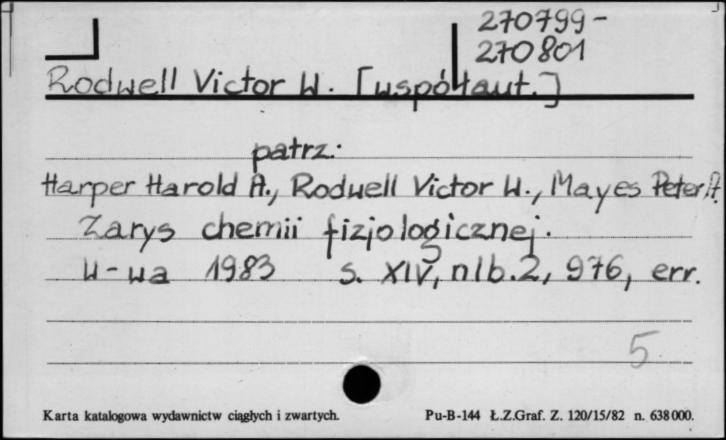 270799-
270801
Rodwell Victor W. [współaut.]
patrz:
Harper Harold A., Rodwell Victor W., Mayes Peter A.
Zarys chemii fizjologicznej.
W-wa 1983 s. XIV, nlb. 2, 976, err.
5
Karta katalogowa wydawnictw ciągłych i zwartych. Pu-B-144 Ł.Z.Graf. Z. 120/15/82 n. 638000.